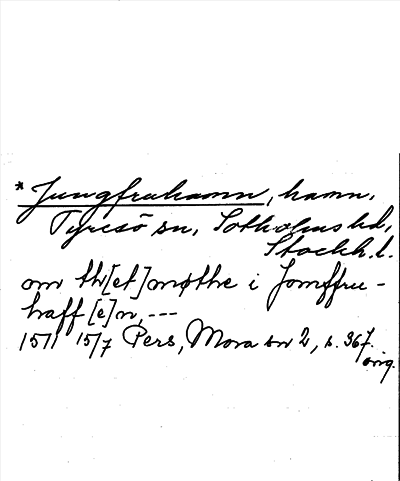 * Jungfruhamn, hamn,
Tyresö sn, Sotholms hd,
Stockh. l.
om th[et] møthe i Jomffru-
haff[e]n, ---
1571 15/7 Pers, Mora sn 2, s. 367.
orig.